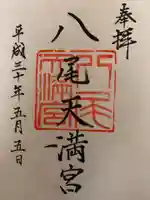 奉拝
八尾天満宮
平成三十年五月五日